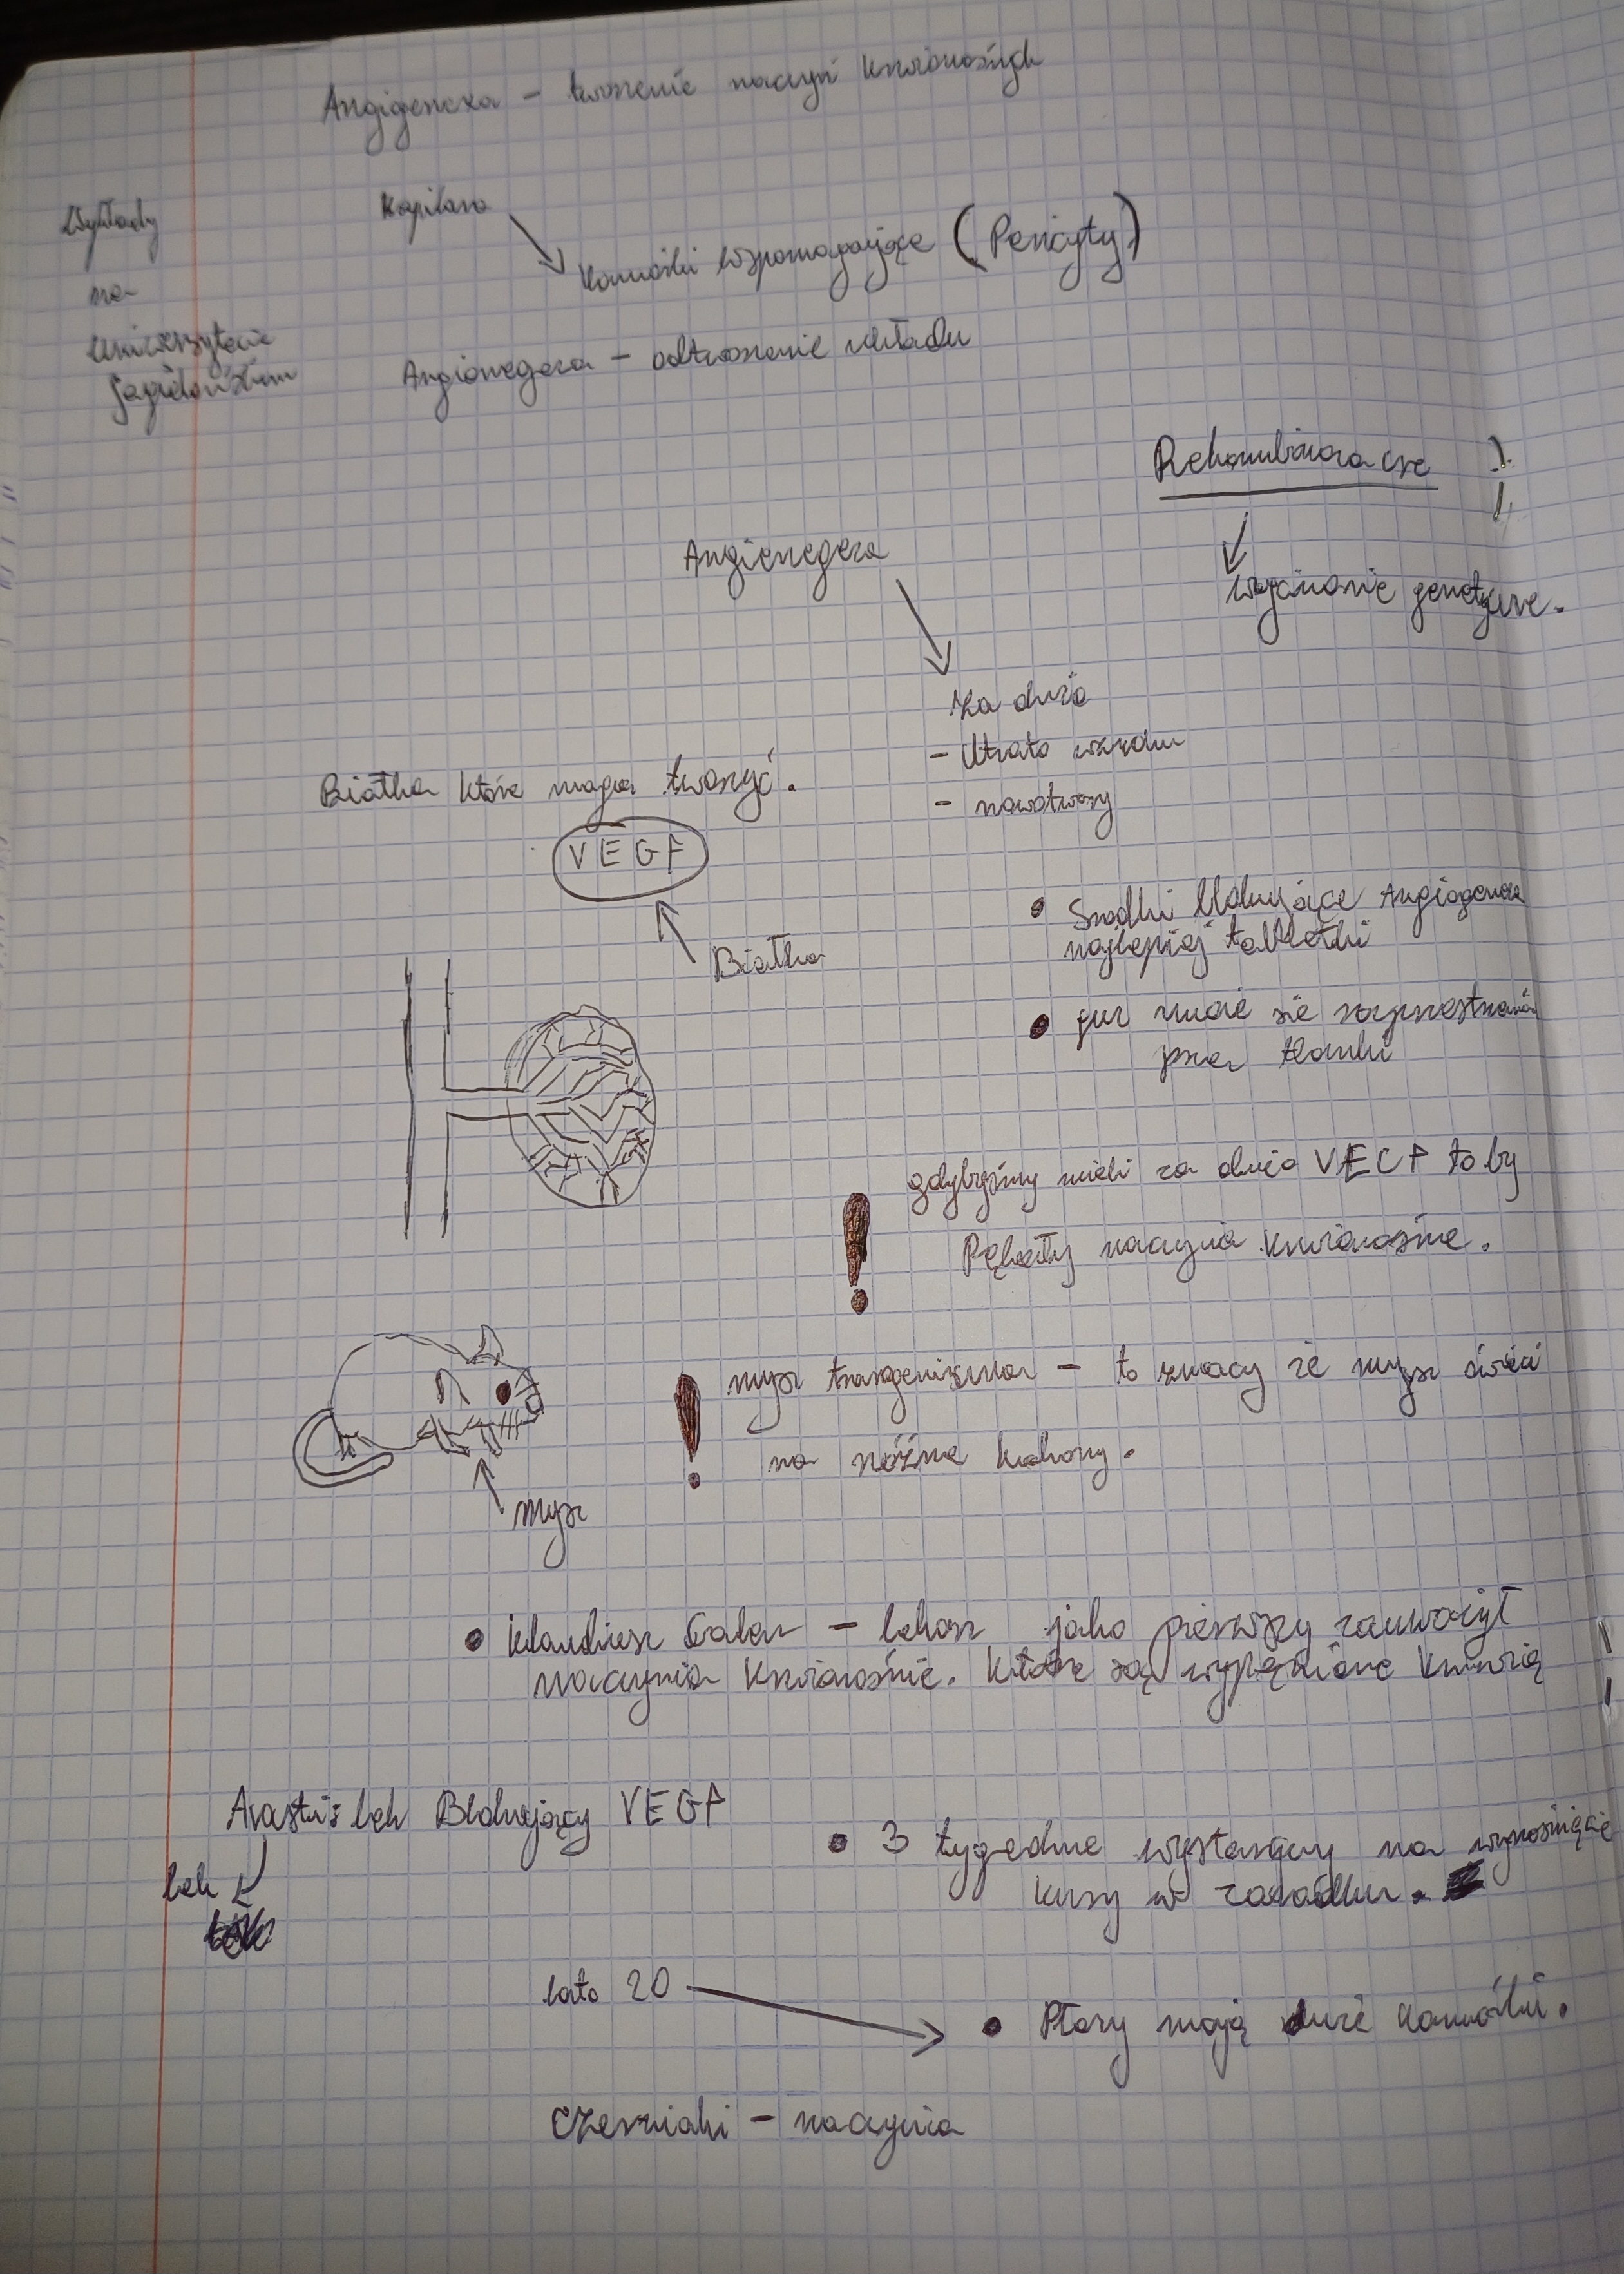 Angigeneza - tworzenie naczyń krwionośnych
Wykłady
na
Uniwersytecie
Jagielońskim
Kapilara
Komórki wspomagające (Perycyty)
Angionegeza - odtworzenie układu
Rekombinacze !
wycinanie genetyczne.
Angienegeza
za dużo
- Utrata wzroku
- nowotwory
Białka które maga tworzyć.
VEGF
Białka
• Srodki blokujące Angiogeneze
najlepiej tabletki
• guz może sie
przez tkanki
gdybyśmy mieli za dużo VEGF to by
Pękały naczynia krwionośne.
mysz transgeniczna - to znaczy że mysz świeci
na różne kolory.
mysz
• Klaudiusz Galen - lekarz jako pierwszy zauważył
naczynia krwionośnie. Które są wypęnione krwią
Avastis lek Blokujący VEGF
lek
• 3 tygodnie wystarczy na wyrośnięcie
kury w zarodku.
lata 20
• Płazy mają duże komórki.
Czerniaki - naczynia